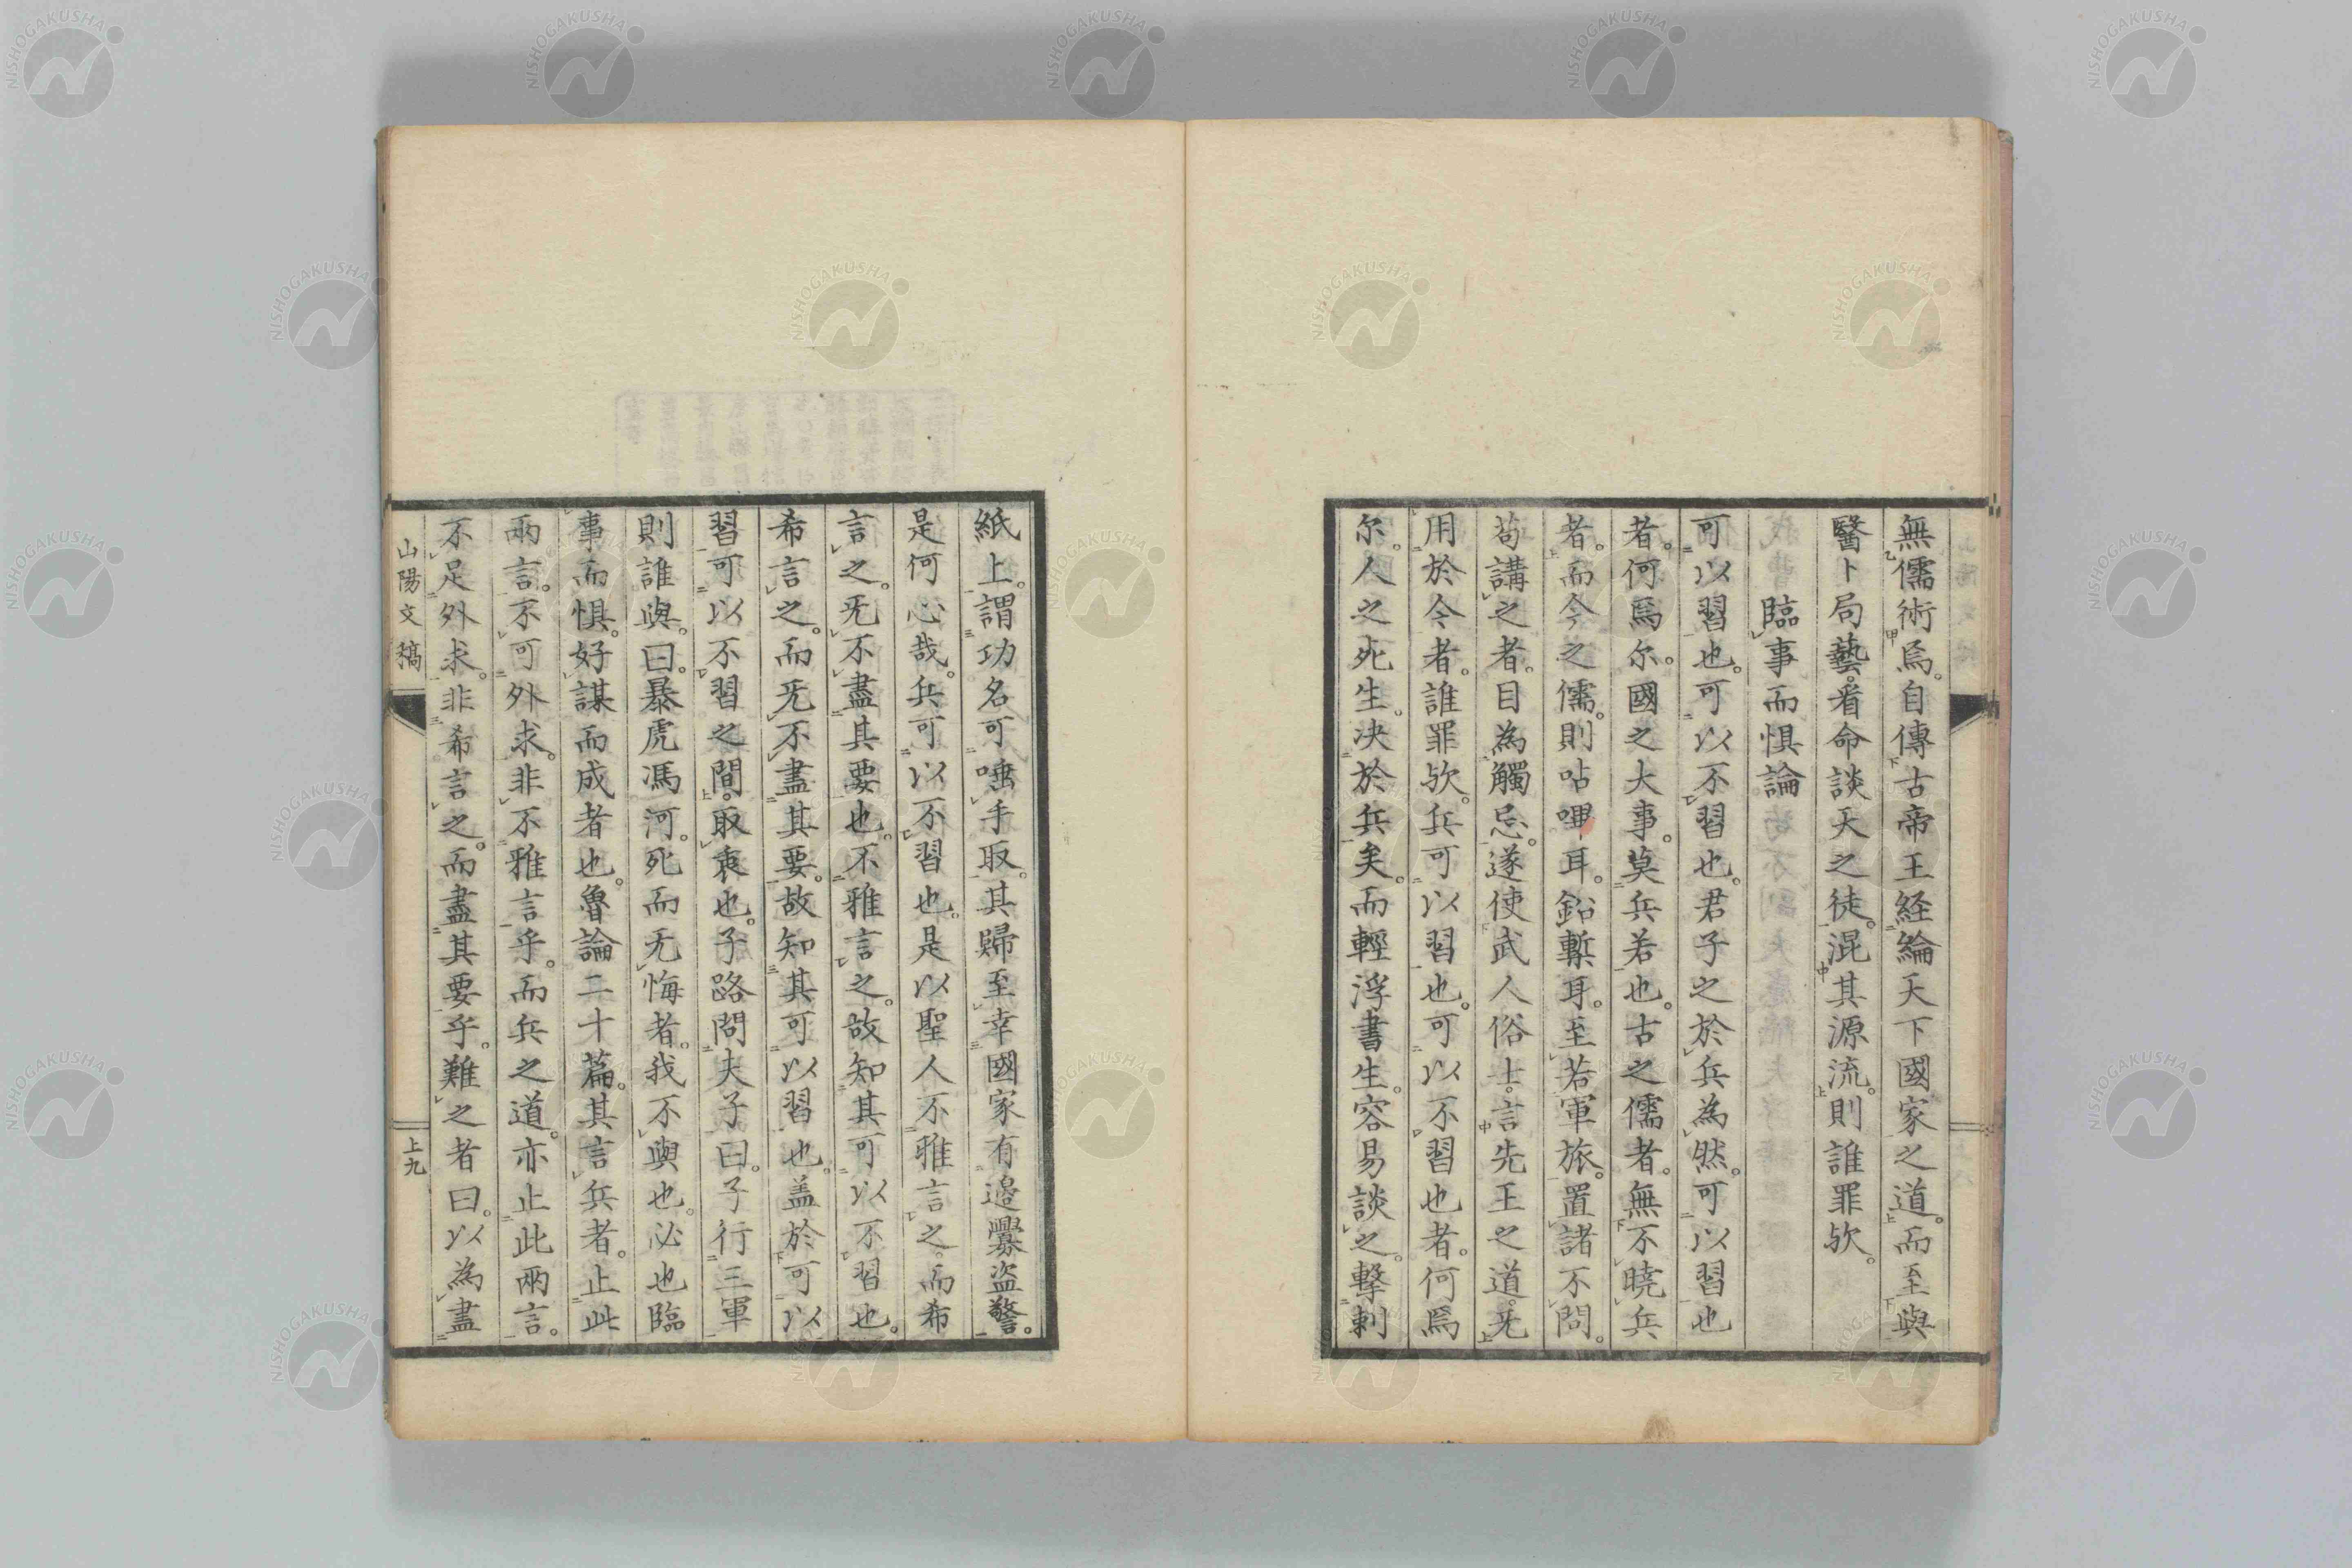 無儒術焉。自傳古帝王経綸天下國家之道。而至與
醫卜局藝。看命談天之徒。混其源流。則誰罪欤。
臨事而惧論
可以習也。可以不習也。君子之於兵為然。可以習也
者。何焉尓。國之大事。莫兵若也。古之儒者。無不暁兵
者。而今之儒。則呫嗶耳。鉛槧耳。至若軍旅。置諸不問。
苟講之者。目為觸忌。遂使武人俗士。言先王之道。无
用於今者。誰罪欤。兵可以習也。可以不習也者。何焉
尓。人之死生。决於兵矣。而輕浮書生。容易談之。撃刺
紙上。謂功名可唾手取。其歸至幸國家有邉釁盗警。
是何心哉。兵可以不習也。是以聖人不雅言之。而希
言之。无不盡其要也。不雅言之。故知其可以不習也。
希言之。而无不盡其要。故知其可以習也。盖於可以
習可以不習之間。取衷也。子路問夫子曰。子行三軍
則誰與。曰。暴虎馮河。死而无悔者。我不與也。必也臨
事而惧。好謀而成者也。魯論二十篇。其言兵者。止此
兩言。不可外求。非不雅言乎。而兵之道。亦止此兩言。
不足外求。非希言之。而盡其要乎。難之者曰。以為盡
山陽文稿
上九
NISHOGAKUSHA